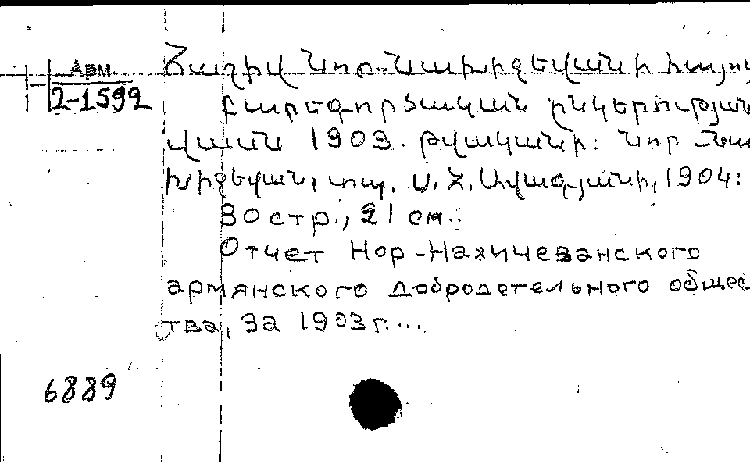 Арм
2-1592
Հաշիվ Նոր-Նախիջեւանի հայոց
բարեգործական ընկերության
վասն 1903. թվականի: Նոր Նա
խիջեվան, տպ. Ս. Հ. Ավագյանի, 1904:
30 стр., 21 см.
Отчет Нор-Нахичеванского
армянского добродетельного общес
тва, за 1903 г...
6889